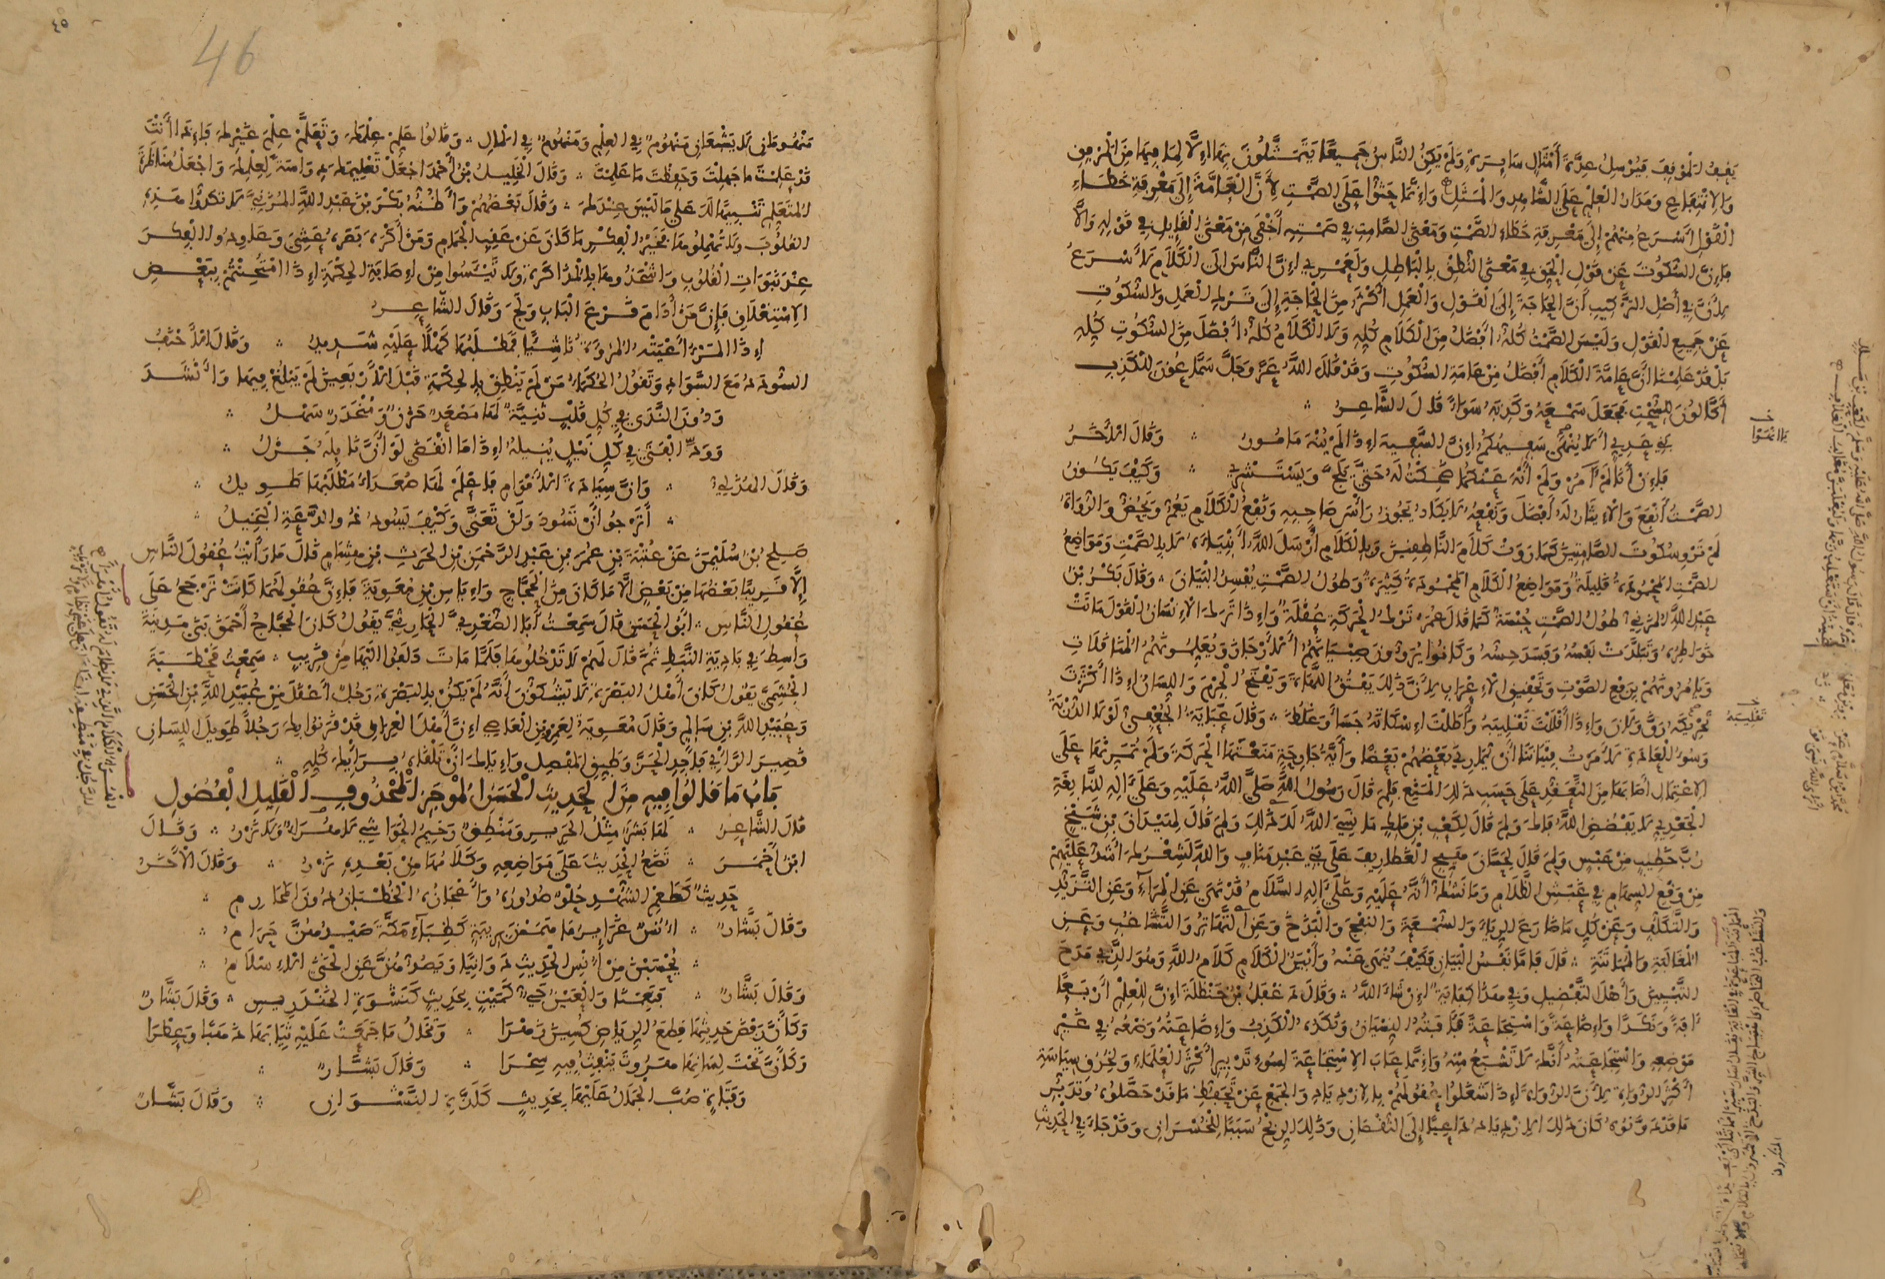 يقف الموقف فيرسل عدة أمثال سايرة ولم يكن الناس جميعا يتمثلون بها إلا لما فيها من المرفق
والانتفاع ومدار العلم على الشاهد والمثل وإنما حثوا على الصمت لأن العامة إلى معرفة خطاء
القول أسرع منهم إلى معرفة خطاء الصمت ومعنى الصامت في صمته أخفى من معنى القايل في قوله وإلا
فإن السكوت عن قول الحق في معنى النطق بالباطل ولعمري إن الناس إلى الكلام لأسرع
لأن في أصل التركيب أن الحاجة إلى القول والعمل أكثر من الحاجة إلى ترك العمل والسكوت
عن جميع القول وليس الصمت كله أفضل من الكلام كله ولا الكلام كله أفضل من السكوت كله
بل قد علمنا أن عامة الكلام أفضل من عامة السكوت وقد قال الله عز وجل سماعون للكذب
أكالون للسحت فجعل سمعه وكذبه سواء قال الشاعر
بني عدي ألا ينهى سفيهكم إن السفيه إذا لم ينه مامور وقال الآخر
فإن أنا لم آمر ولم أنه عنكما ضحكت له حتى يلج ويستشري وكيف يكون
الصمت أنفع والإيثار له أفضل ونفعه لا يكاد يجوز رأس صاحبه ونفع الكلام يعم ويخص والرواة
لم ترو سكوت الصامتين كما روت كلام الناطقين وبالكلام أرسل الله أنبياءه لا بالصمت ومواضع
الصمت المحمودة قليلة ومواضع الكلام المحمودة كثيرة وطول الصمت يفسد البيان وقال بكر بن
عبد الله المزني طول الصمت حبسة كما قال عمر ترك الحركة عقلة وإذا ترك الإنسان القول ماتت
خواطره وتبلدت نفسه وفسد حسه وكانوا يروون صبيانهم الأرجاز ويعلمونهم المناقلات
ويامرونهم برفع الصوت وتحقيق الإعراب لأن ذلك يفتق اللهاة ويفتح الجرم واللسان إذا أكثرت
تحريكه رق ولان وإذا أقللت تقليبه وأطلت إسكاته جسا وغلظ وقال عباية الجعفي لولا الدربة
وسوء العادة لأمرت فتياننا أن يماري بعضهم بعضا وأية جارحة منعتها الحركة ولم تمرنها على
الاعتمال أصابها من التعقد على حسب ذلك المنع فلم قال رسول الله صلى الله عليه وعلى آله للنابغة
الجعدي لا يفضض الله فاك ولم قال لكعب بن مالك ما نسي الله لك ذلك ولم قال لهيذان بن شيخ
رب خطيب من عبس ولم قال لحسان هيج الغطاريف على بني عبد مناف والله لشعرك أشد عليهم
من وقع السهام في غبش الظلام وما نشك أنه عليه وعلى آله السلام قد نهى عن المراء وعن التزيد
والتكلف وعن كل ما ضارع الرياء والسمعة والنفج والبذخ وعن التهاتر والتشاغب وعن
المغالبة والمماتنة قال فاما نفس البيان فكيف ينهى عنه وأبين الكلام كلام الله وهو الذي مدح
التبيين وأهل التفصيل وفي هذا كفاية إن شاء الله وقال دغفل بن حنظلة إن للعلم أربعا
آفة ونكدا وإضاعة واستجاعة فآفته النسيان ونكده الكذب وإضاعته وضعه في غير
موضعه واستجاعته أنك لا تشبع منه وإنما عاب الاستجاعة لسوء تدبير أكثر العلماء ولخرق سياسة
أكثر الرواة لأن الرواة إذا شغلوا عقولهم بالازدياد والجمع عن تحفظ ما قد حصلوه وتدبر
ما قد دونوه كان ذلك الازدياد داعيا إلى النقصان وذلك الربح سببا للخسران وقد جاء في الحديث
46
٤٥
منهومان لا يشبعان منهوم في العلم ومنهوم في المال وقالوا علم علمك وتعلم علم غيرك فإذا أنت
قد علمت ما جهلت وحفظت ما علمت وقال الخليل بن أحمد اجعل تعليمك دراسة لعلمك واجعل مناظرة
المتعلم تنبيها لك على ما ليس عندك وقال بعضهم وأظنه بكر بن عبد الله المزني لا تكدوا هذه
القلوب ولا تهملوها فخير الفكر ما كان عن عقب الجمام ومن أكره بصره عشي وعاودوا الفكر
عند نبوات القلوب واشحذوها بالمذاكرة ولا تيئسوا من إصابة الحكمة إذا امتحنتم ببعض
الاستغلاق فإن من أدام قرع الباب ولج وقال الشاعر
إذا المرء أعيته المروءة ناشئا فمطلبها كهلا عليه شديد وقال الأحنف
السودد مع السواد وتقول الحكماء من لم ينطق بالحكمة قبل الأربعين لم يبلغ فيها وأنشد
ودون الندى في كل قلب ثنية لها مصعد حزن ومنحدر سهل
وود الفتى في كل نيل ينيله إذا ما انقضى لو أن نايله جزل
وقال الهذلي وإن سيادة الأقوام فاعلم لها صعداء مطلبها طويل
أترجو أن تسود ولن تعنى وكيف يسود ذو الدعة البخيل
صلح بن سليمن عن عتبة بن عمر بن عبد الرحمن بن الحرث بن هشام قال ما رأيت عقول الناس
إلا قريبا بعضها من بعض إلا ما كان من الحجاج وإياس بن معوية فإن عقولهما كانت ترجح على
عقول الناس أبو الحسن قال سمعت أبا الصغدي الحارثي يقول كان الحجاج أحمق بنى مدينة
واسط في بادية النبط ثم قال لهم لا تدخلوها فلما مات دلفوا إليها من قريب سمعت قحطبة
الخشني يقول كان أهل البصرة لا يشكون أنه لم يكن بالبصرة رجل أعقل من عبيد الله بن الحسن
وعبيد الله بن سالم وقال معوية لعمرو بن العاصي إن أهل العراق قد قرنوا بك رجلا طويل اللسان
قصير الراي فأجد الحز وطبق المفصل وإياك أن تلقاه برايك كله
باب ما قالوا فيه من الحديث الحسن الموجز المحذوف القليل الفضول
قال الشاعر لها بشر مثل الحرير ومنطق رخيم الحواشي لا هراء ولا نزر وقال
ابن أحمر تضع الحديث على مواضعه وكلامها من بعده نزر وقال الآخر
حديث كطعم الشهد حلو صدوره وأعجازه الخطبان دون المحارم
وقال بشار أنس غراير ما هممن بريبة كظباء مكة صيدهن حرام
يحسبن من أنس الحديث دوانيا ويصدهن عن الخنى الإسلام
وقال بشار فنعمنا والعين حي كميت بحديث كنشوة الخندريس وقال بشار
وكأن رفض حديثها قطع الرياض كسين زهرا وتخال ما جمعت عليه ثيابها ذهبا وعطرا
وكأن تحت لسانها هروت ينفث فيه سحرا وقال بشار
وفتاة صب الجمال عليها بحديث كلذة النشوان وقال بشار